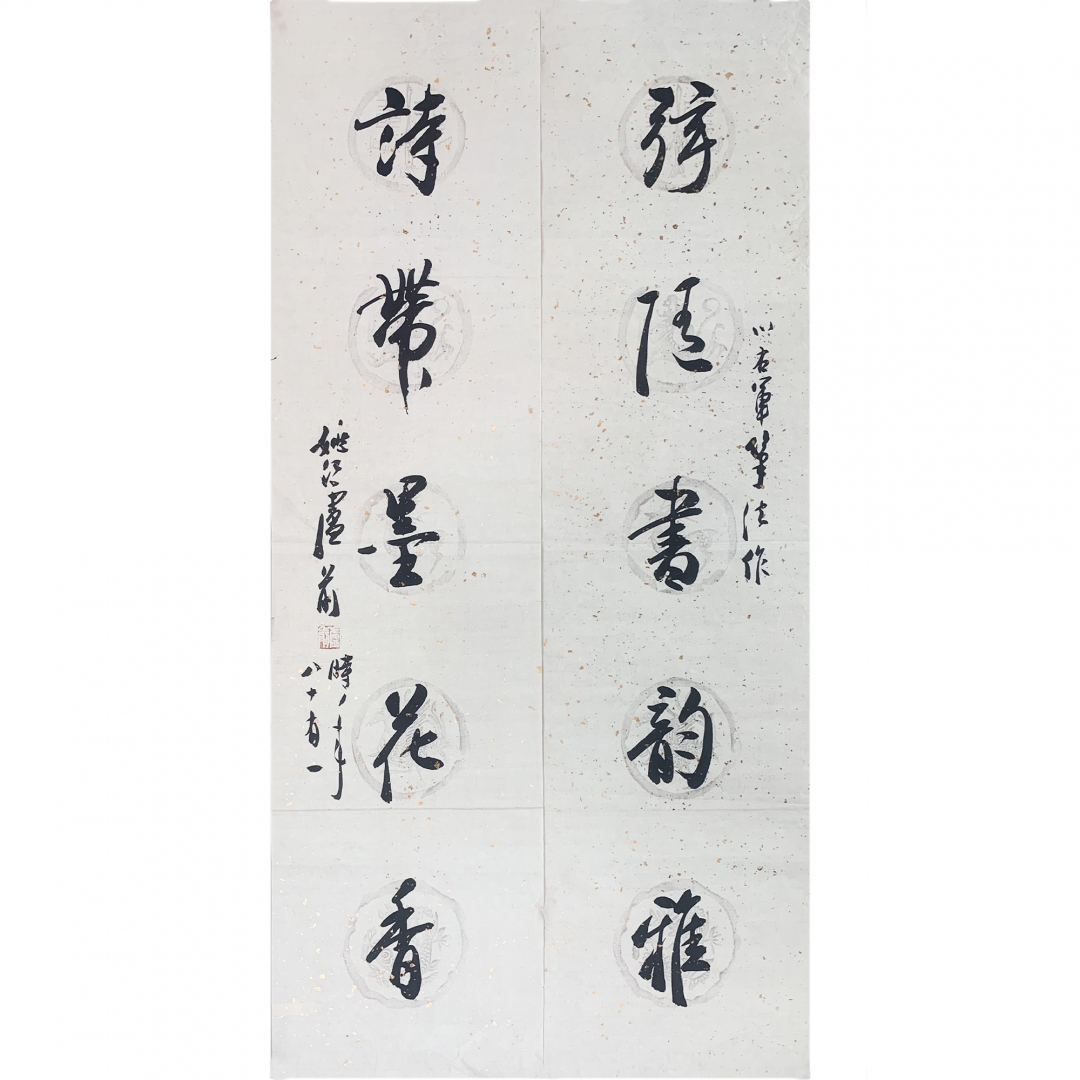 以右軍筆法作
書韵雅
詩帶墨花香
姚江盧前
時年
八十有一